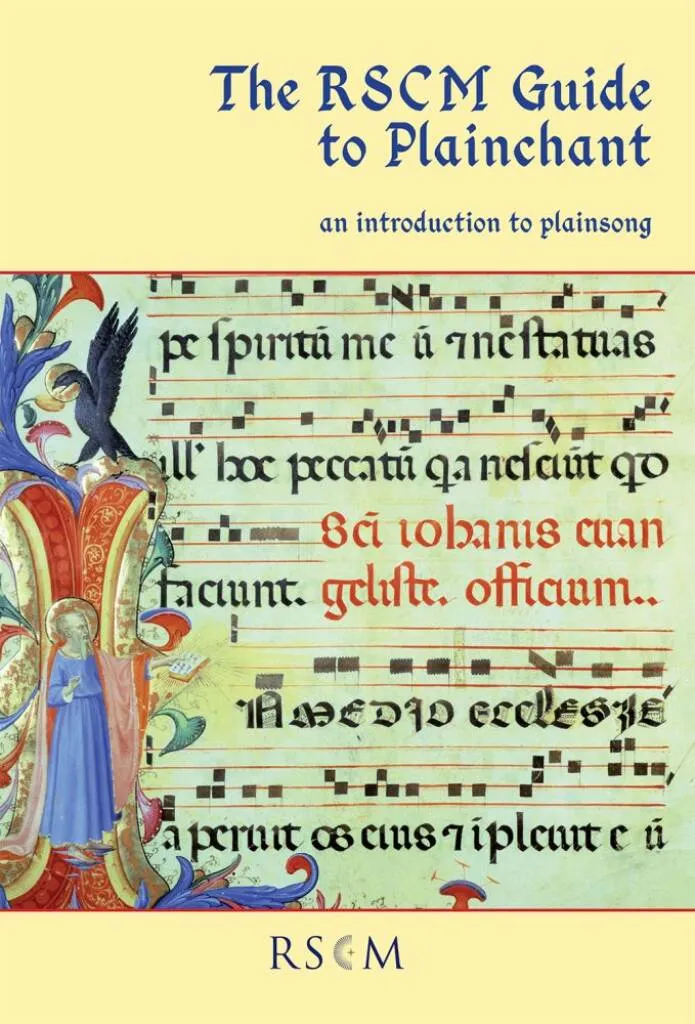 The RSCM Guide
to Plainchant
an introduction to plainsong
pe ſpiritū me ū ⁊ ne ſtatuas
ill' hoc peccatū qa neſciūt qd
Scī iohanis euan
faciunt. geliſte. officium..
IN MEDIO ECCLESIE
aperuit os eius ⁊ ipleuit e ū
RSCM